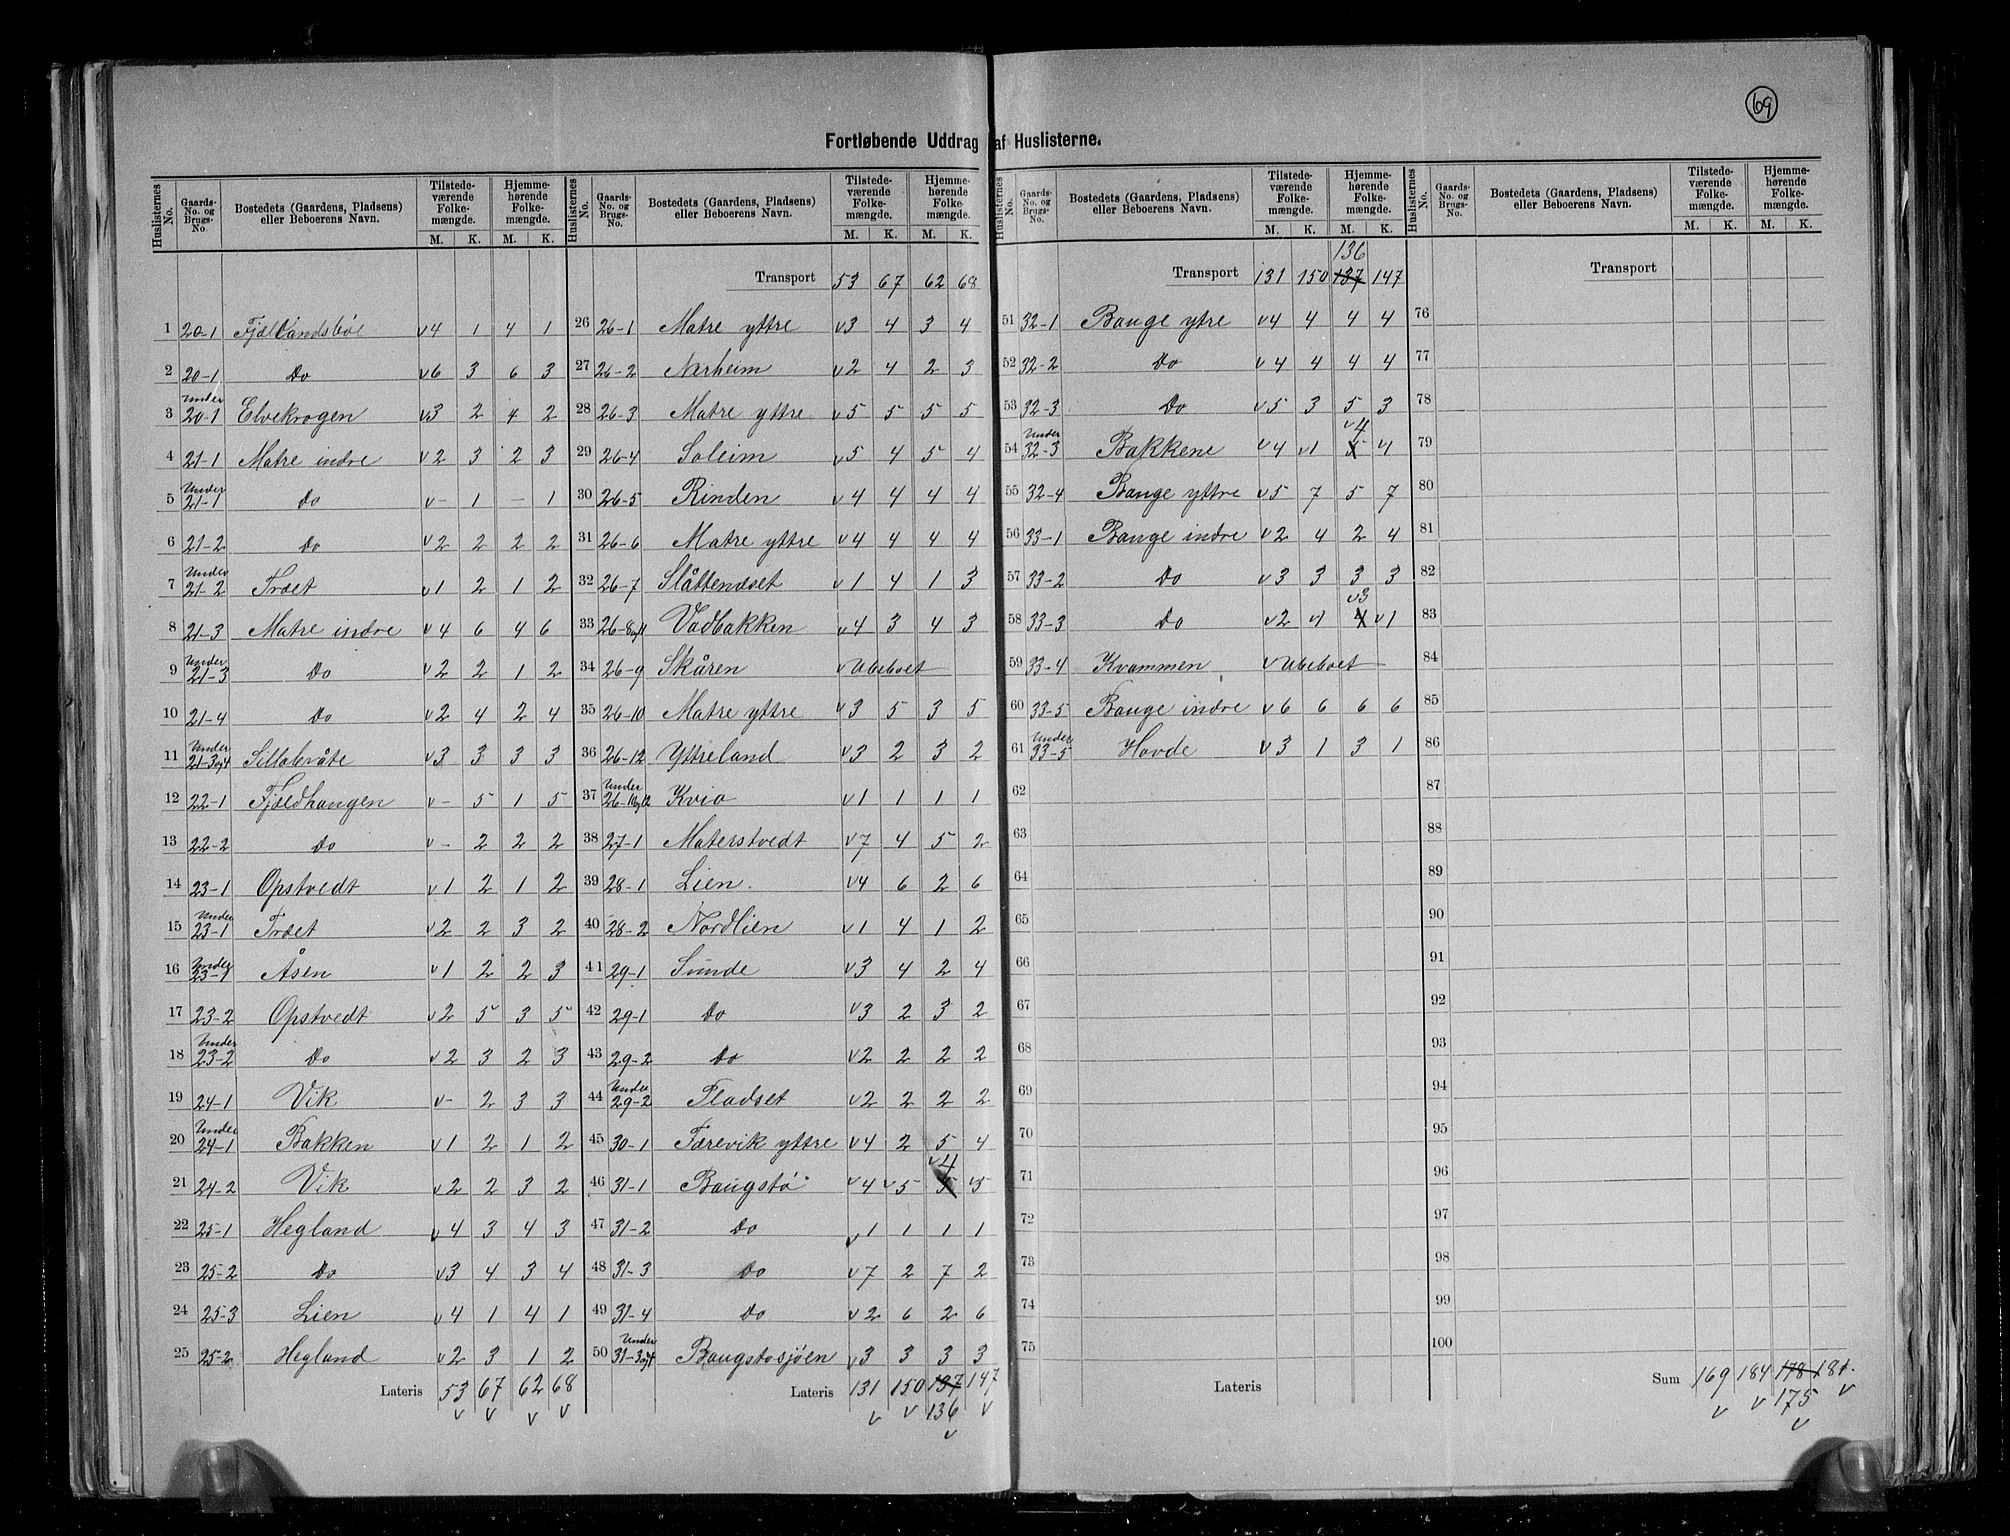 69
Fortløbende Uddrag af Huslisterne.
Huslisternes No. | Gaards-No. og Brugs-No. | Bostedets (Gaardens, Pladsens) eller Beboerens Navn. | Tilstedeværende Folkemængde. M. K. | Hjemmehørende Folkemængde. M. K.
1 20-1 Fjællandsbøe v4 1 4 1
2 20-1 Do v6 3 6 3
3 Under 20-1 Elvekrogen v3 2 4 2
4 21-1 Matre indre v2 3 2 3
5 Under 21-1 Do v- 1 - 1
6 21-2 Do v2 2 2 2
7 Under 21-2 Træet v1 2 1 2
8 21-3 Matre indre v4 6 4 6
9 Under 21-3 Do v2 2 1 2
10 21-4 Do v2 4 2 4
11 Under 21-3og4 Sillabråte v3 3 3 3
12 22-1 Fjeldhaugen v- 5 1 5
13 22-2 Do v- 2 2 2
14 23-1 Opstvedt v1 2 1 2
15 Under 23-1 Træet v2 2 3 2
16 Under 23-1 Åsen v1 2 2 3
17 23-2 Opstvedt v2 5 3 5
18 Under 23-2 Do v2 3 2 3
19 24-1 Vik v- 2 3 3
20 Under 24-1 Bakken v1 2 1 2
21 24-2 Vik v2 2 3 2
22 25-1 Hegland v4 3 4 3
23 25-2 Do v3 4 3 4
24 25-3 Lien v4 1 4 1
25 25-2 Hegland v2 3 1 2
Lateris 53 67 62 68
v v v v
Huslisternes No. | Gaards-No. og Brugs-No. | Bostedets (Gaardens, Pladsens) eller Beboerens Navn. | Tilstedeværende Folkemængde. M. K. | Hjemmehørende Folkemængde. M. K.
Transport 53 67 62 68
26 26-1 Matre yttre v3 4 3 4
27 26-2 Nerheim v2 4 2 3
28 26-3 Matre yttre v5 5 5 5
29 26-4 Soleim v5 4 5 4
30 26-5 Rinden v4 4 4 4
31 26-6 Matre yttre v4 4 4 4
32 26-7 Slåttenæset v1 4 1 3
33 26-8og11 Vadbakken v4 3 4 3
34 26-9 Skåren v Ubeboet
35 26-10 Matre yttre v3 5 3 5
36 26-12 Yttreland v3 2 3 2
37 Under 26-11og12 Kvia v1 1 1 1
38 27-1 Materstvedt v7 4 5 2
39 28-1 Lien. v4 6 2 6
40 28-2 Nordlien v1 4 1 2
41 29-1 Sunde v3 4 2 4
42 29-1 Do v3 2 3 2
43 29-2 Do v2 2 2 2
44 Under 29-2 Fladset v2 2 2 2
45 30-1 Færevik yttre v4 2 5 4
46 31-1 Baugstø v4 v5 5 v4 v5
47 31-2 Do v1 1 1 1
48 31-3 Do v7 2 7 2
49 31-4 Do v2 6 2 6
50 Under 31-3og4 Baugstøsjøen v3 3 3 3
Lateris 131 150 137 147
v v 136 v
v
Huslisternes No. | Gaards-No. og Brugs-No. | Bostedets (Gaardens, Pladsens) eller Beboerens Navn. | Tilstedeværende Folkemængde. M. K. | Hjemmehørende Folkemængde. M. K.
136
Transport 131 150 137 147
51 32-1 Bauge ytre v4 4 4 4
52 32-2 Do v4 4 4 4
53 32-3 Do v5 3 5 3
54 Under 32-3 Bakkene v4 v1 5 v4 v1
55 32-4 Bauge yttre v5 7 5 7
56 33-1 Bauge indre v2 4 2 4
57 33-2 Do v3 3 3 3
58 33-3 Do v2 v1 4 v3 v1
59 33-4 Kvammen v Ubeboet
60 33-5 Bauge indre v6 6 6 6
61 Under 33-5 Hovde v3 1 3 1
62
63
64
65
66
67
68
69
70
71
72
73
74
75
Lateris
Huslisternes No. | Gaards-No. og Brugs-No. | Bostedets (Gaardens, Pladsens) eller Beboerens Navn. | Tilstedeværende Folkemængde. M. K. | Hjemmehørende Folkemængde. M. K.
Transport
76
77
78
79
80
81
82
83
84
85
86
87
88
89
90
91
92
93
94
95
96
97
98
99
100
Sum 169 184 178 181.
v v 175 v
v